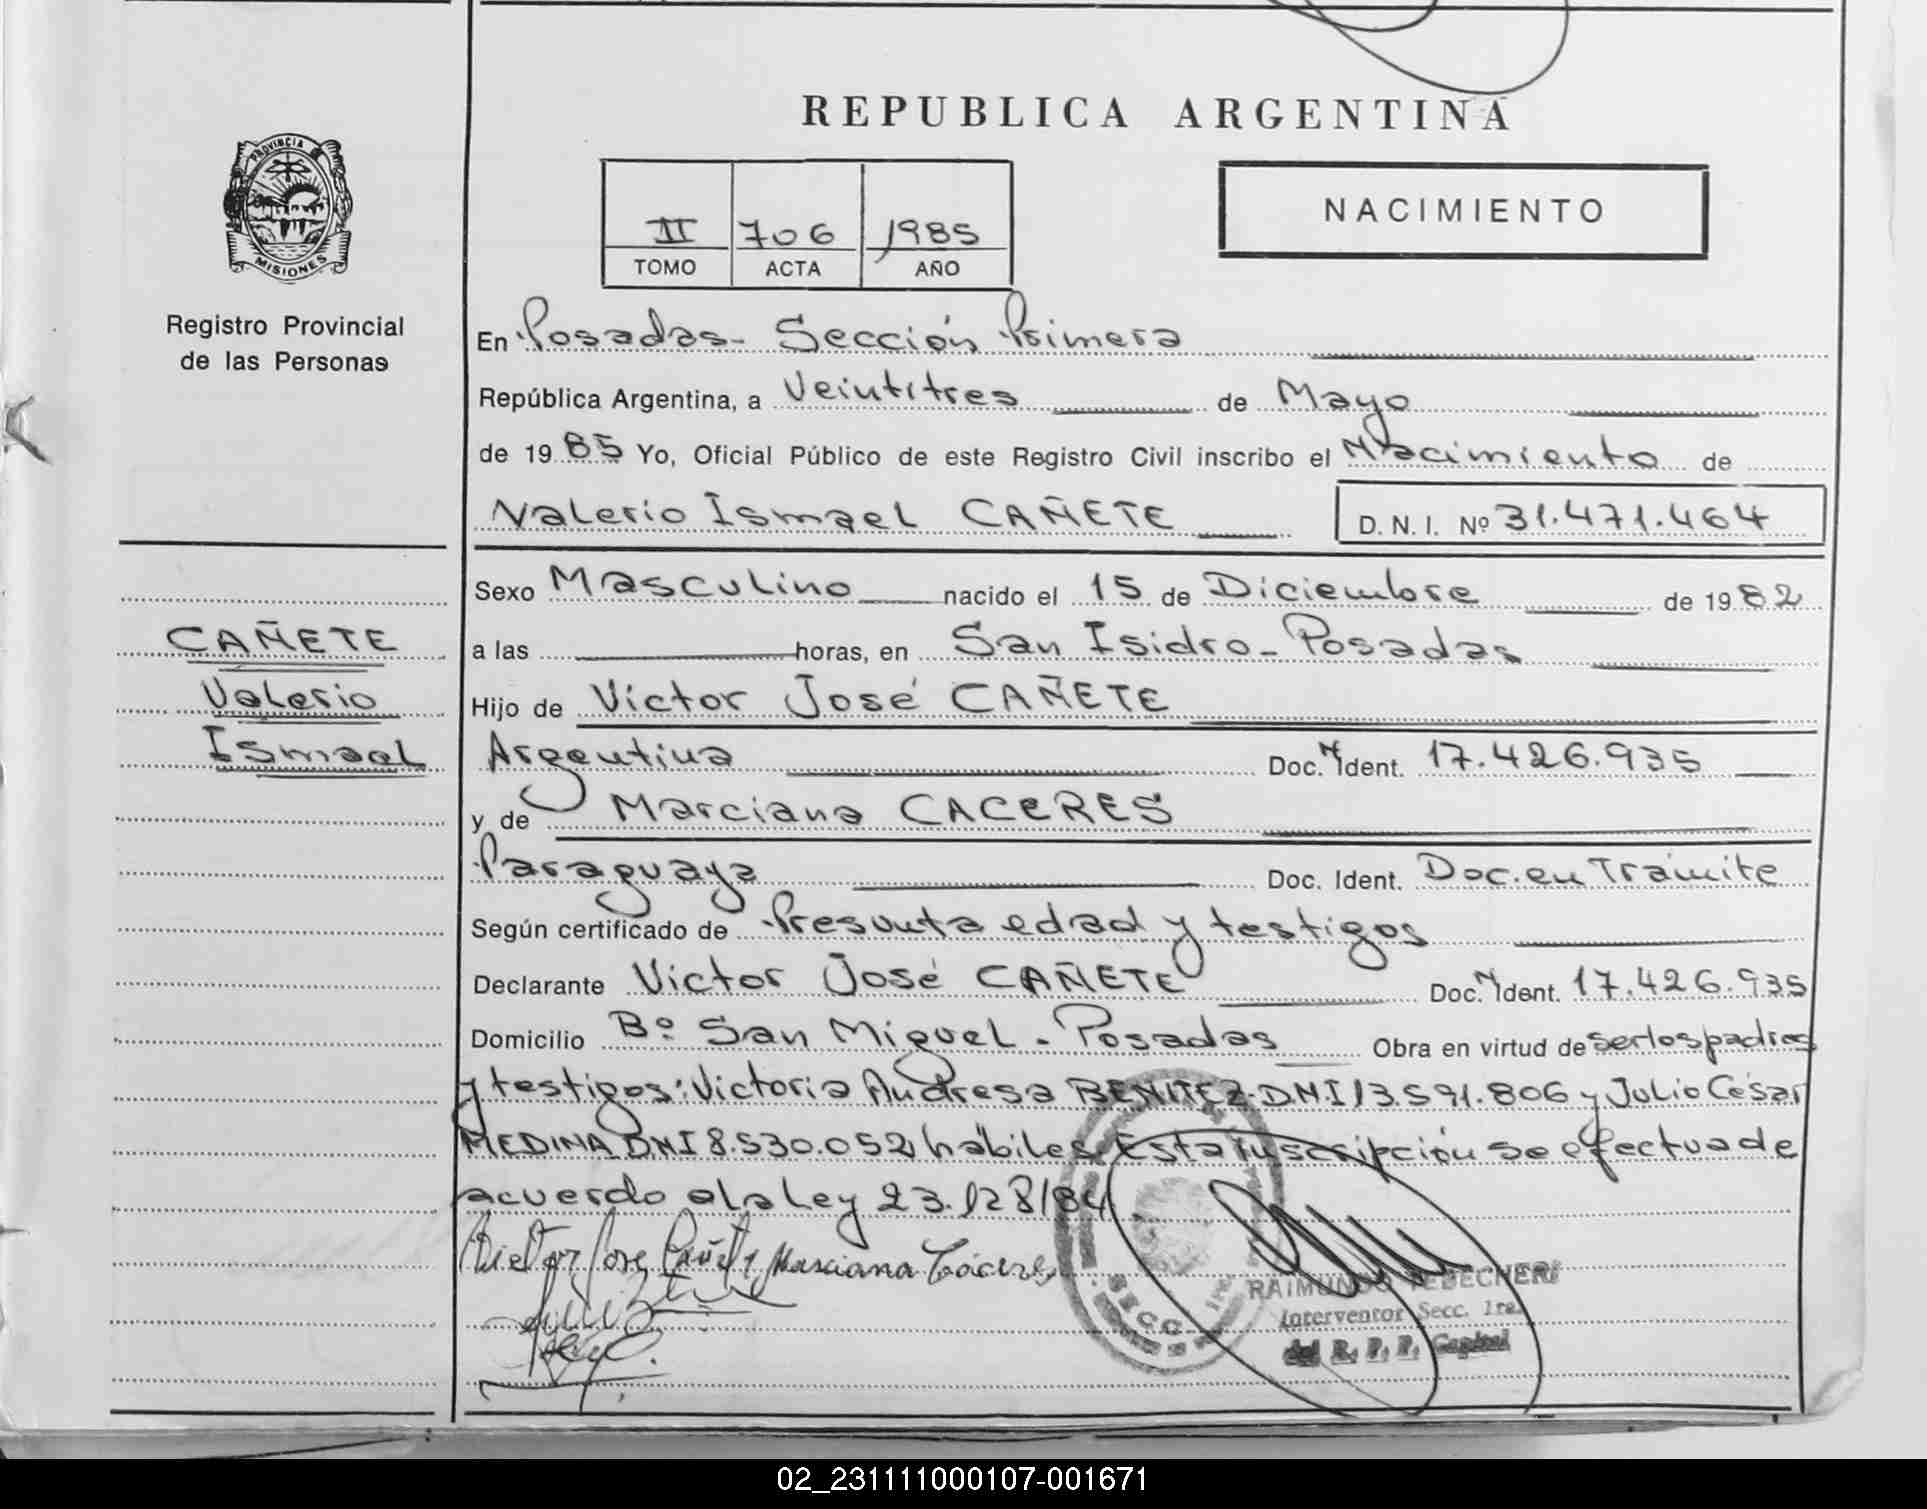 REPUBLICA ARGENTINA
PROVINCIA
MISIONES
Registro Provincial
de las Personas
II 706 1985
TOMO ACTA AÑO
NACIMIENTO
En Posadas- Sección Primera
República Argentina, a Veintitres de Mayo
de 1985 Yo, Oficial Público de este Registro Civil inscribo el Nacimiento de
Valerio Ismael CAÑETE D. N. I. Nº 31.471.464
CAÑETE
Valerio
Ismael
Sexo Masculino nacido el 15 de Diciembre de 1982
a las horas, en San Isidro- Posadas
Hijo de Victor José CAÑETE
Argentina Doc. N Ident. 17.426.935
y de Marciana CACERES
Paraguaya Doc. Ident. Doc. en Trámite
Según certificado de Presunta edad y testigos
Declarante Victor José CAÑETE Doc. N Ident. 17.426.935
Domicilio Bº San Miguel - Posadas Obra en virtud de ser los padres
y testigos: Victoria Andresa BENITEZ- D.N.I 13.591.806 y Julio César
MEDINA DNI 8.530.052 hábiles. Esta inscripción se efectua de
acuerdo a la Ley 23.128/84
Victor Jose Cañete Marciana Cáceres
SECC. 1ra
RAIMUNDO TEBECHERI
Interventor Secc. 1ra.
del R. P. P. Capital
02_231111000107-001671